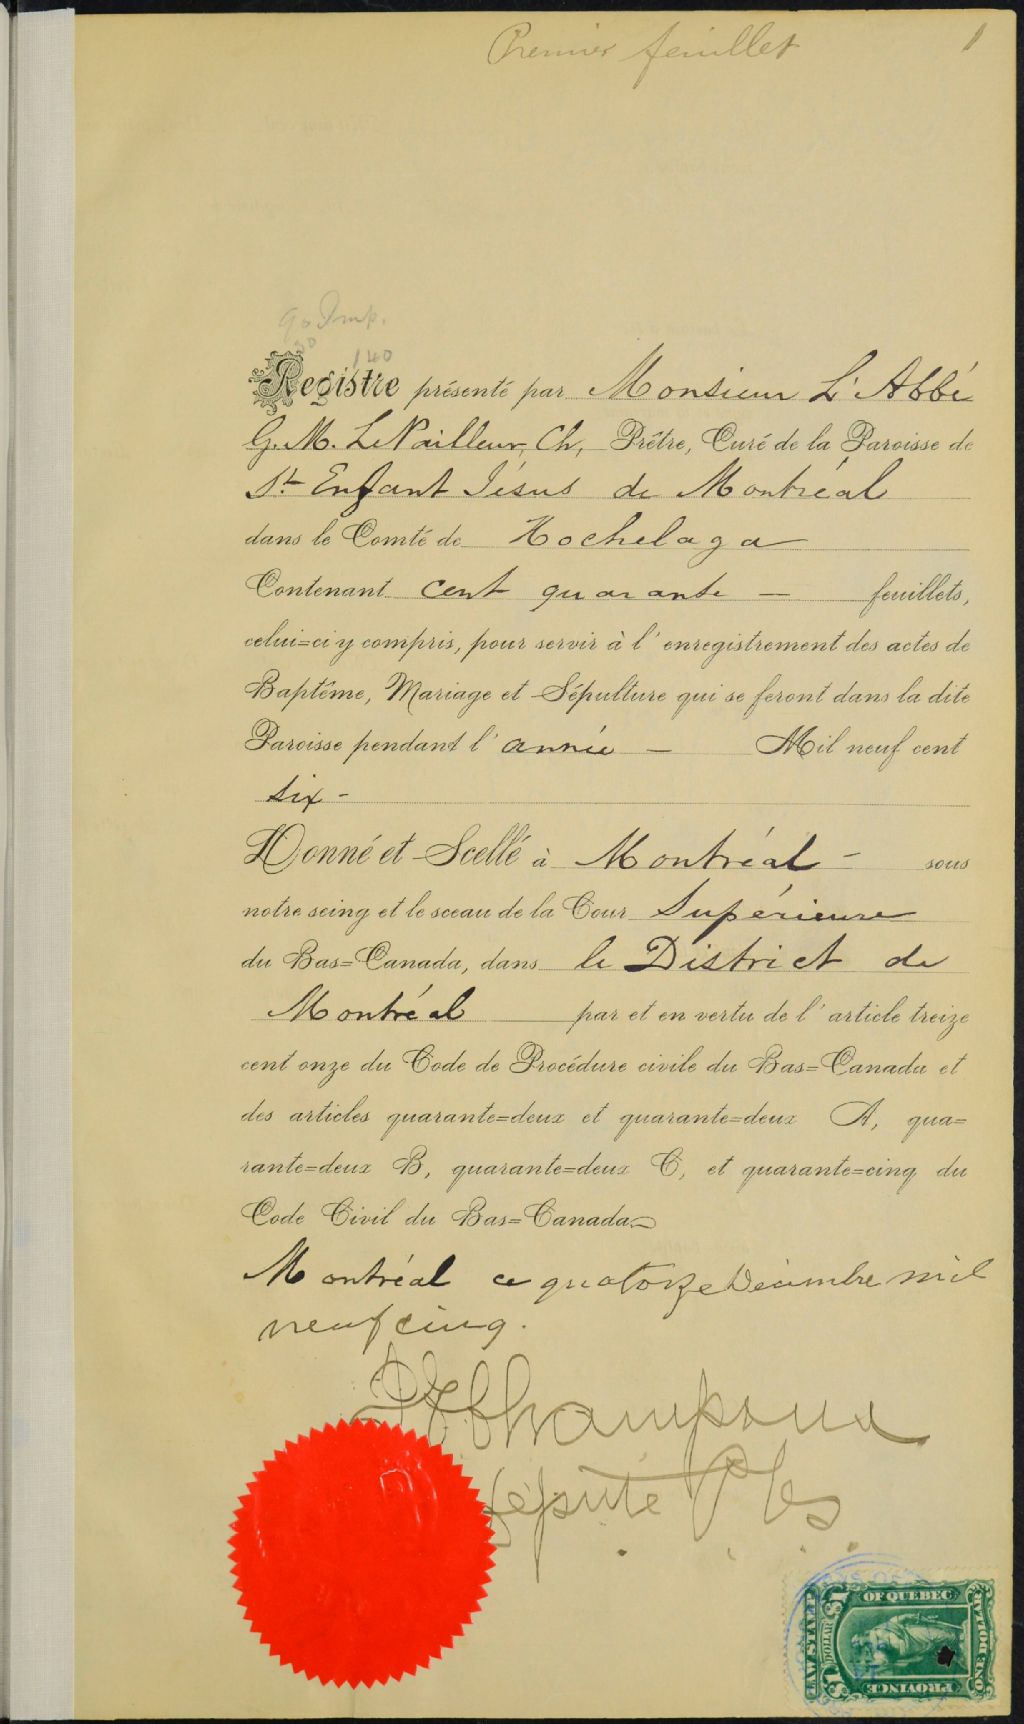 Premier feuillet 1
90 Imp.
20
140
Registre présenté par Monsieur L'Abbé
G. M. LePailleur, Ch, Prêtre, Curé de la Paroisse de
St Enfant Jésus de Montréal
dans le Comté de Hochelaga
Contenant cent quarante — feuillets,
celui=ci y compris, pour servir à l'enregistrement des actes de
Baptême, Mariage et Sépulture qui se feront dans la dite
Paroisse pendant l'année — Mil neuf cent
six -
Donné et Scellé à Montréal - sous
notre seing et le sceau de la Cour Supérieure
du Bas=Canada, dans le District de
Montréal par et en vertu de l'article treize
cent onze du Code de Procédure civile du Bas=Canada et
des articles quarante=deux et quarante=deux A, qua=
rante=deux B, quarante=deux C, et quarante=cinq du
Code Civil du Bas=Canada.
Montréal ce quatorze Décembre mil
neuf cinq.
Champoux
député P
LAW STAMP
OF QUEBEC
ONE DOLLAR
PROVINCE
$1
DOLLAR
$1